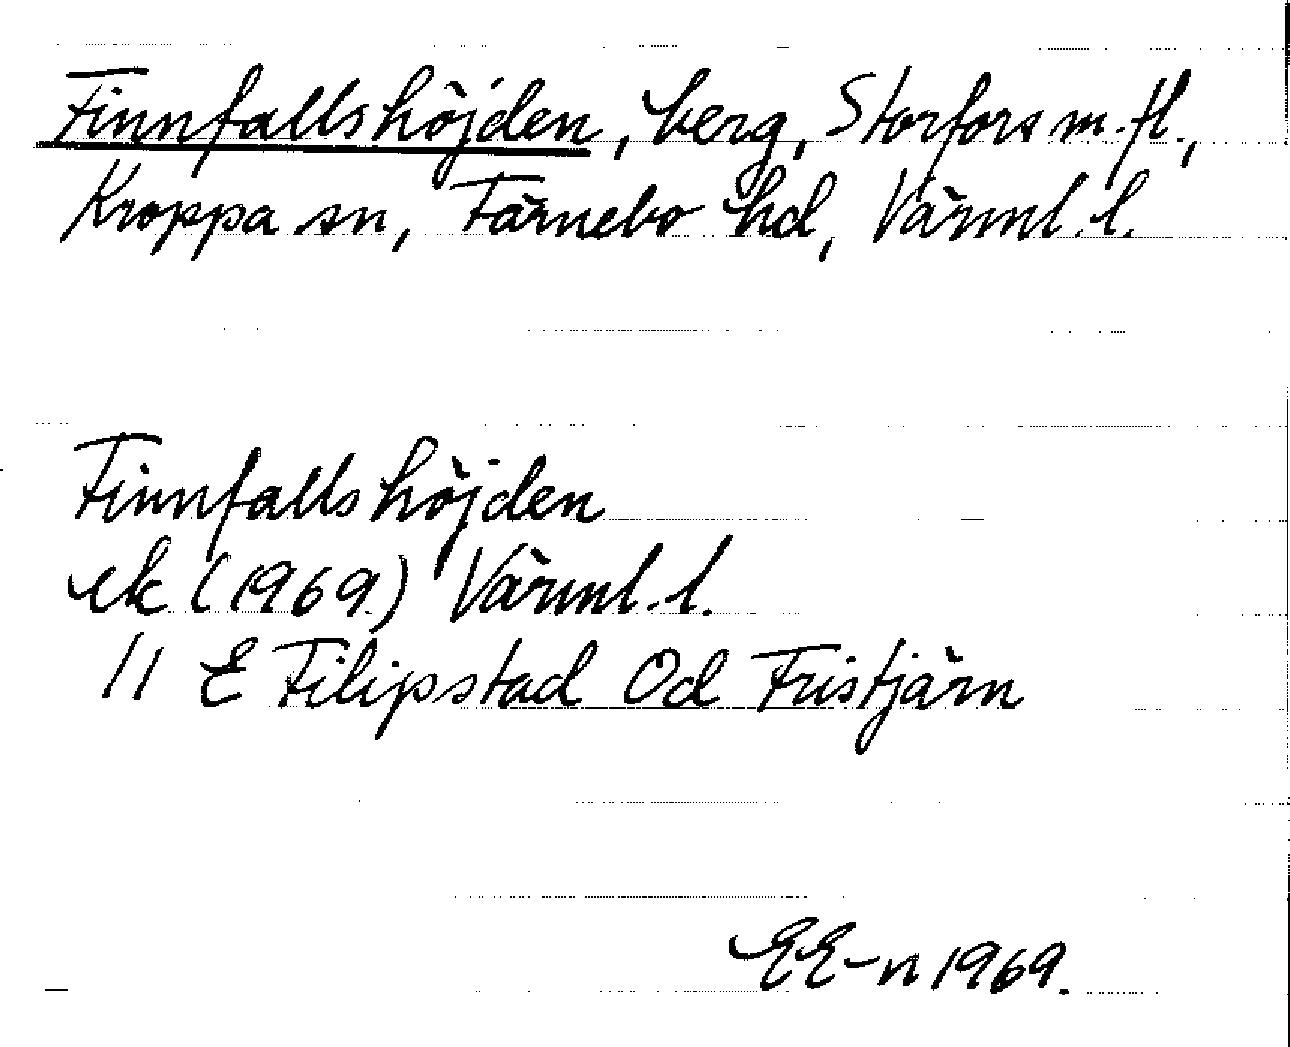 Finnfallshöjden, berg, Storfors m.fl.,
Kroppa sn, Färnebo hd, Värml. l.
Finnfallshöjden
ek (1969) Värml. l.
11 E Filipstad Od Fristjärn
EE-n 1969.